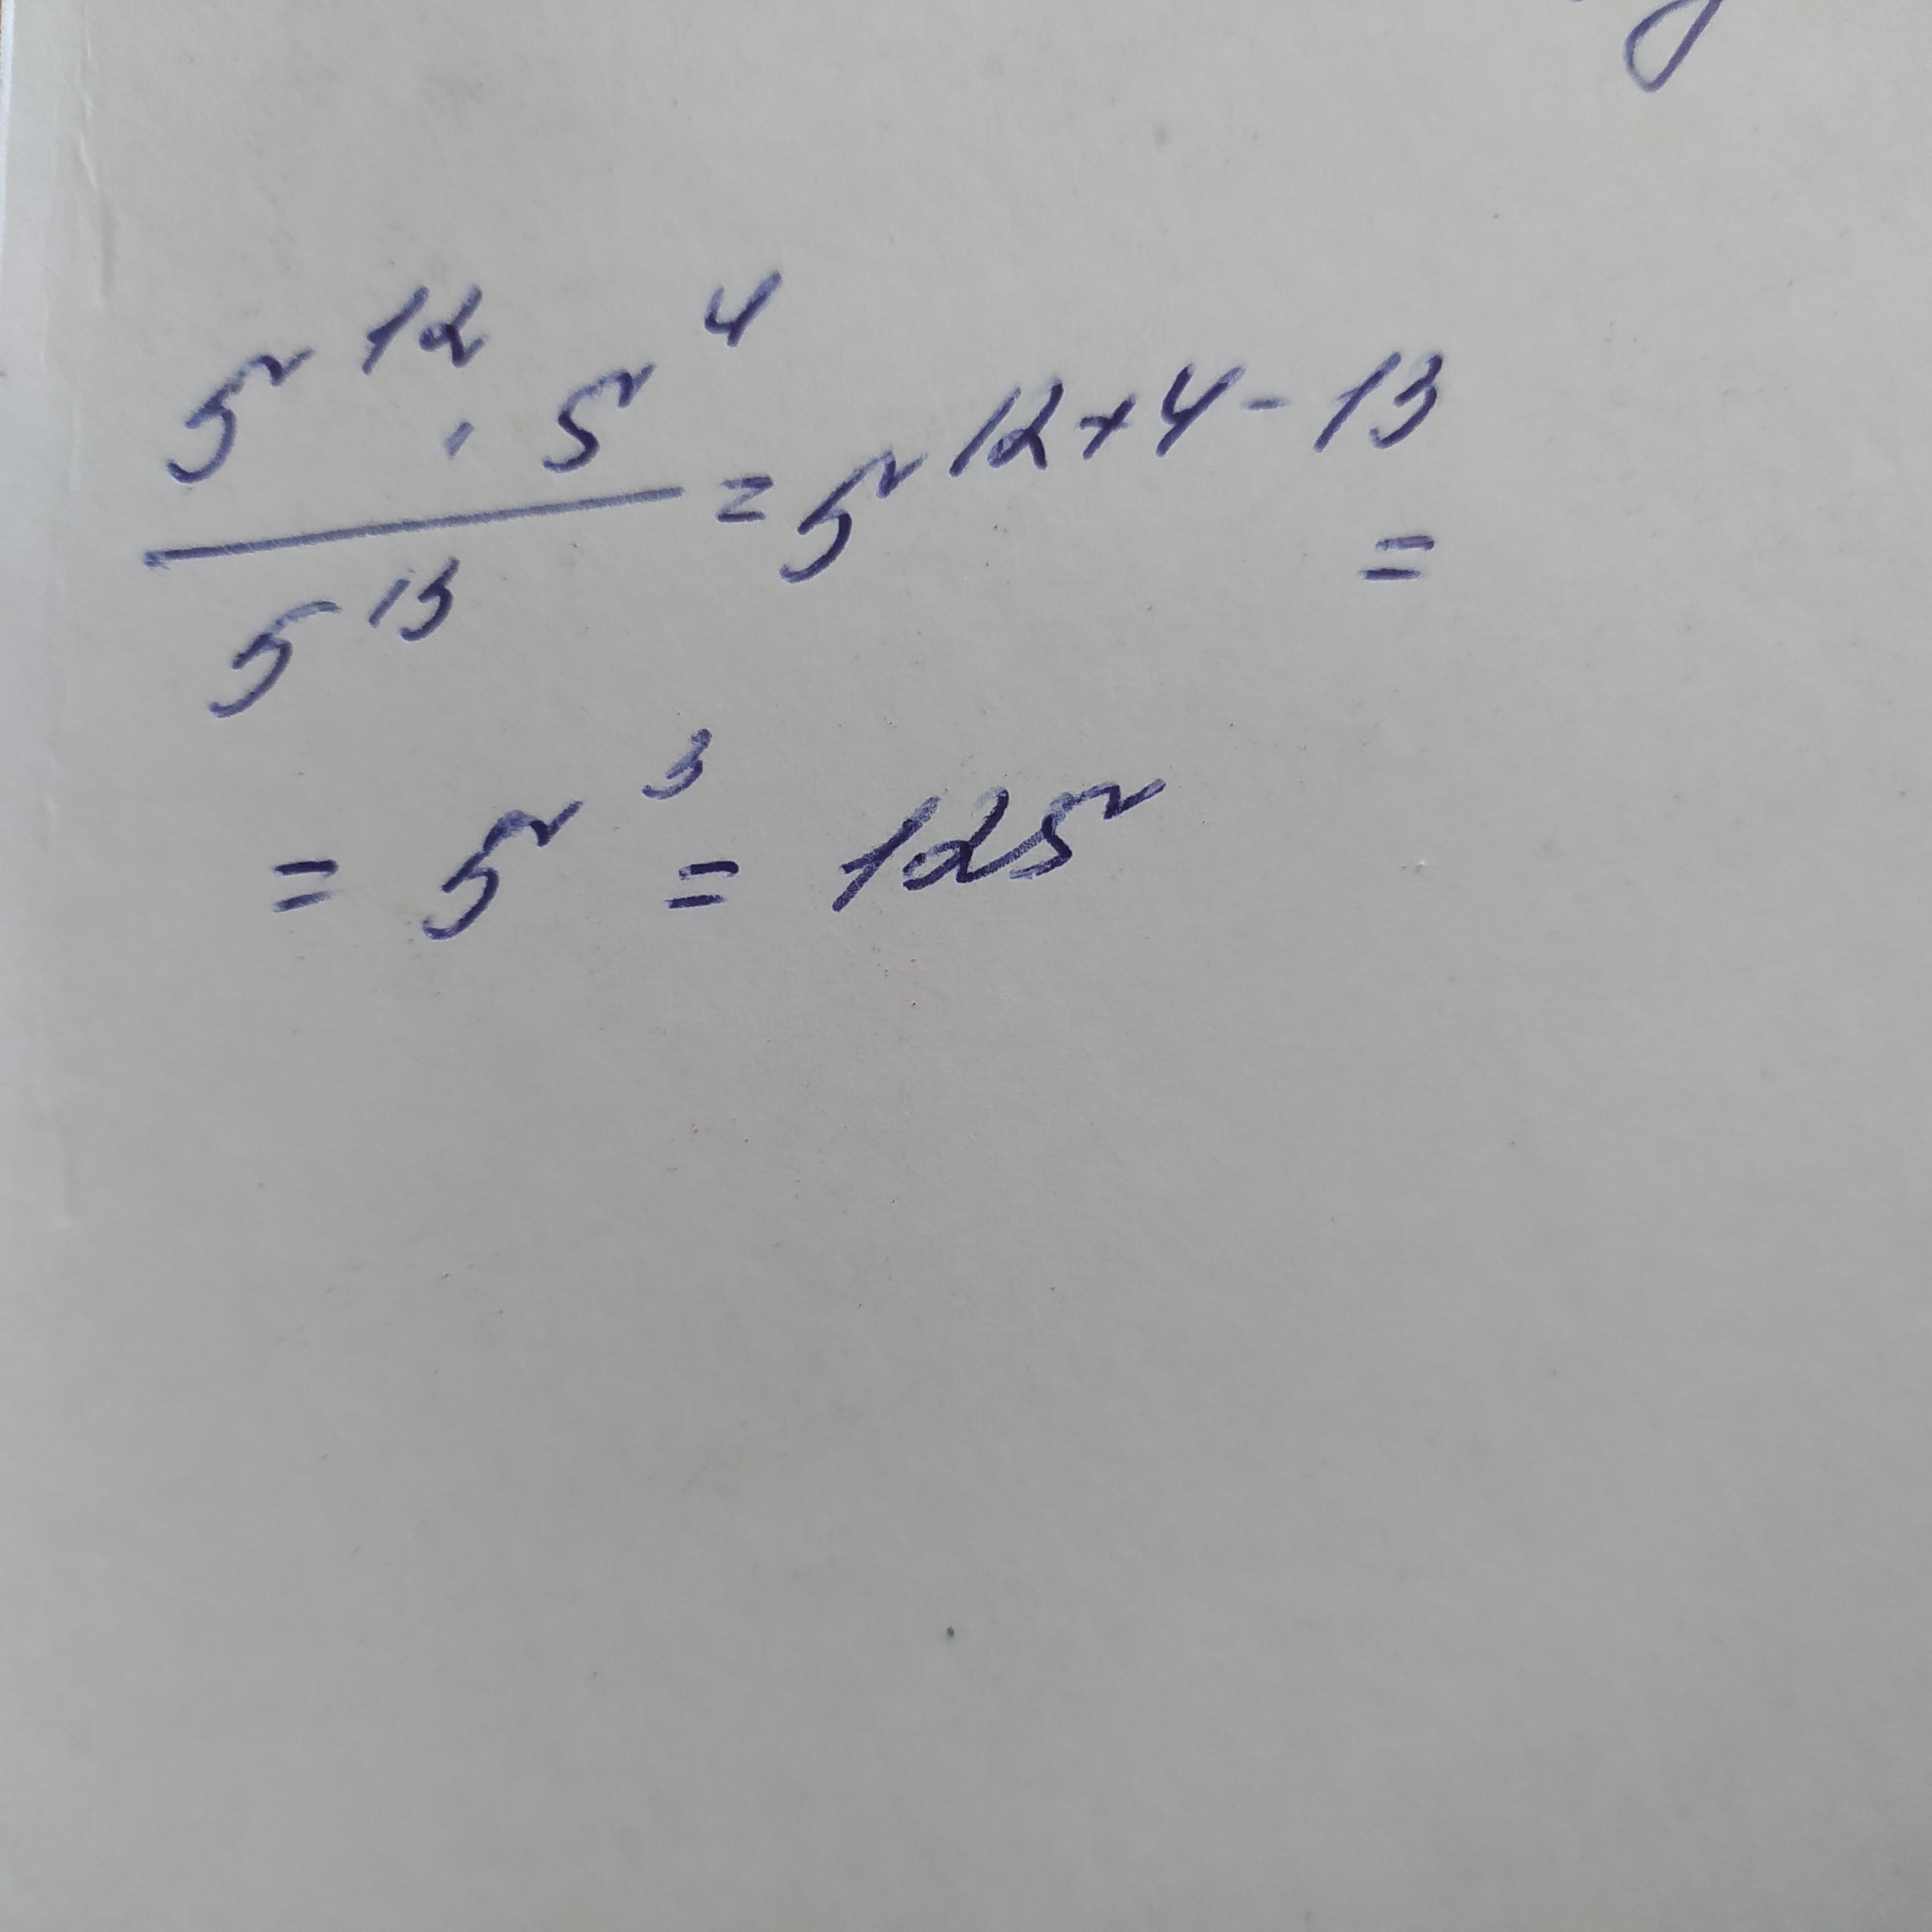 5¹² · 5⁴ / 5¹³ = 5¹²⁺⁴⁻¹³ =
= 5³ = 125